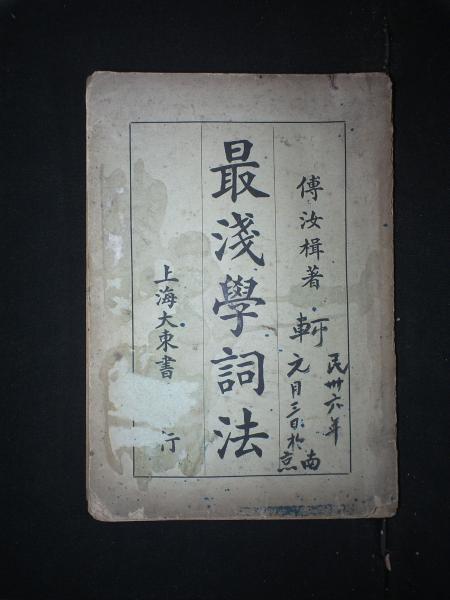 傅汝楫著
民卅六年
元月三日於
南京
最淺學詞法
上海大東書 行